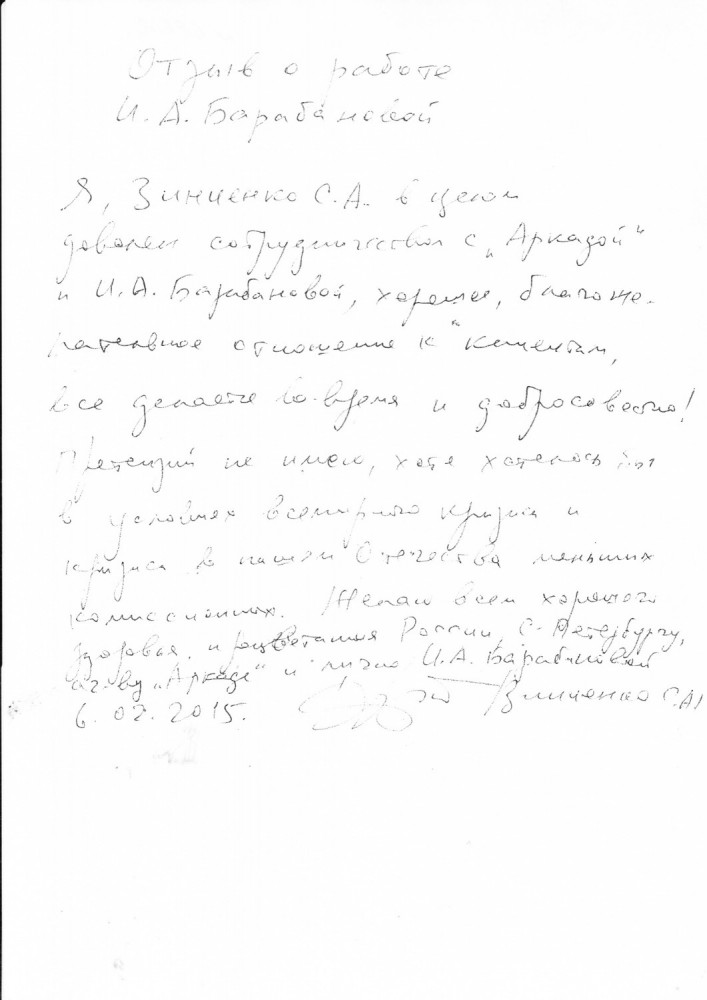 Отзыв о работе
И. А. Барабановой
Я, Зинченко С.А. в целом
доволен сотрудничеством с „Аркадой“
и И.А. Барабановой, хорошее, благоже-
лательное отношение к клиентам,
все делается во-время и добросовестно!
Претензий не имею, хотя хотелось бы
в условиях всемирного кризиса и
кризиса в нашем Отечестве меньших
комиссионных. Желаю всем хорошего
здоровья и процветания России, С-Петербургу,
аг-ву „Аркада“ и лично И.А. Барабановой
6.02.2015. Зинченко С.А)